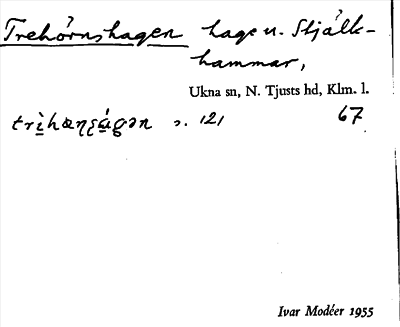 Trehörnshagen hage u. Stjälk-
hammar,
Ukna sn, N. Tjusts hd, Klm. l.
s. 121 67
Ivar Modéer 1955